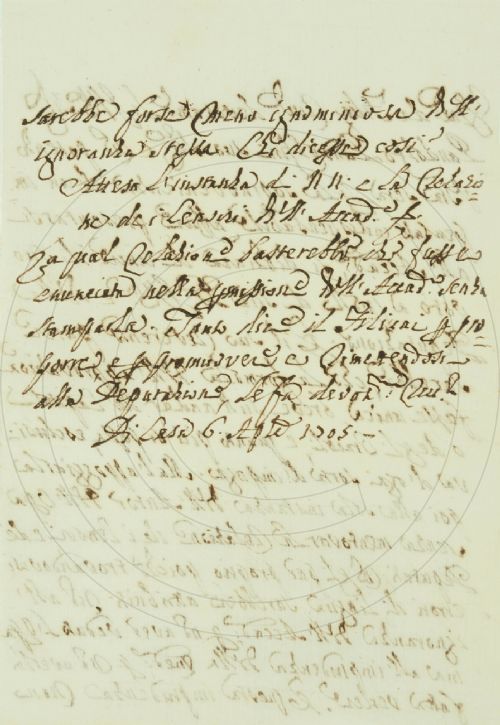 sarebbe forse meno ignominiosa dell'
ignoranza stessa. Chi dicesse così
Attesa l'instanza di N N: e la Relazio=
ne de i Censori dell'Accad:
La qual Relazione basterebbe che fusse
enunciata nella permissione dell'Accad: senza
stamparla. Tanto dice il Filicaia p pro=
porre e promuovere e rimettendosi
alla Deputazione, le fa devot:
Di Casa 6. Aple 1705.